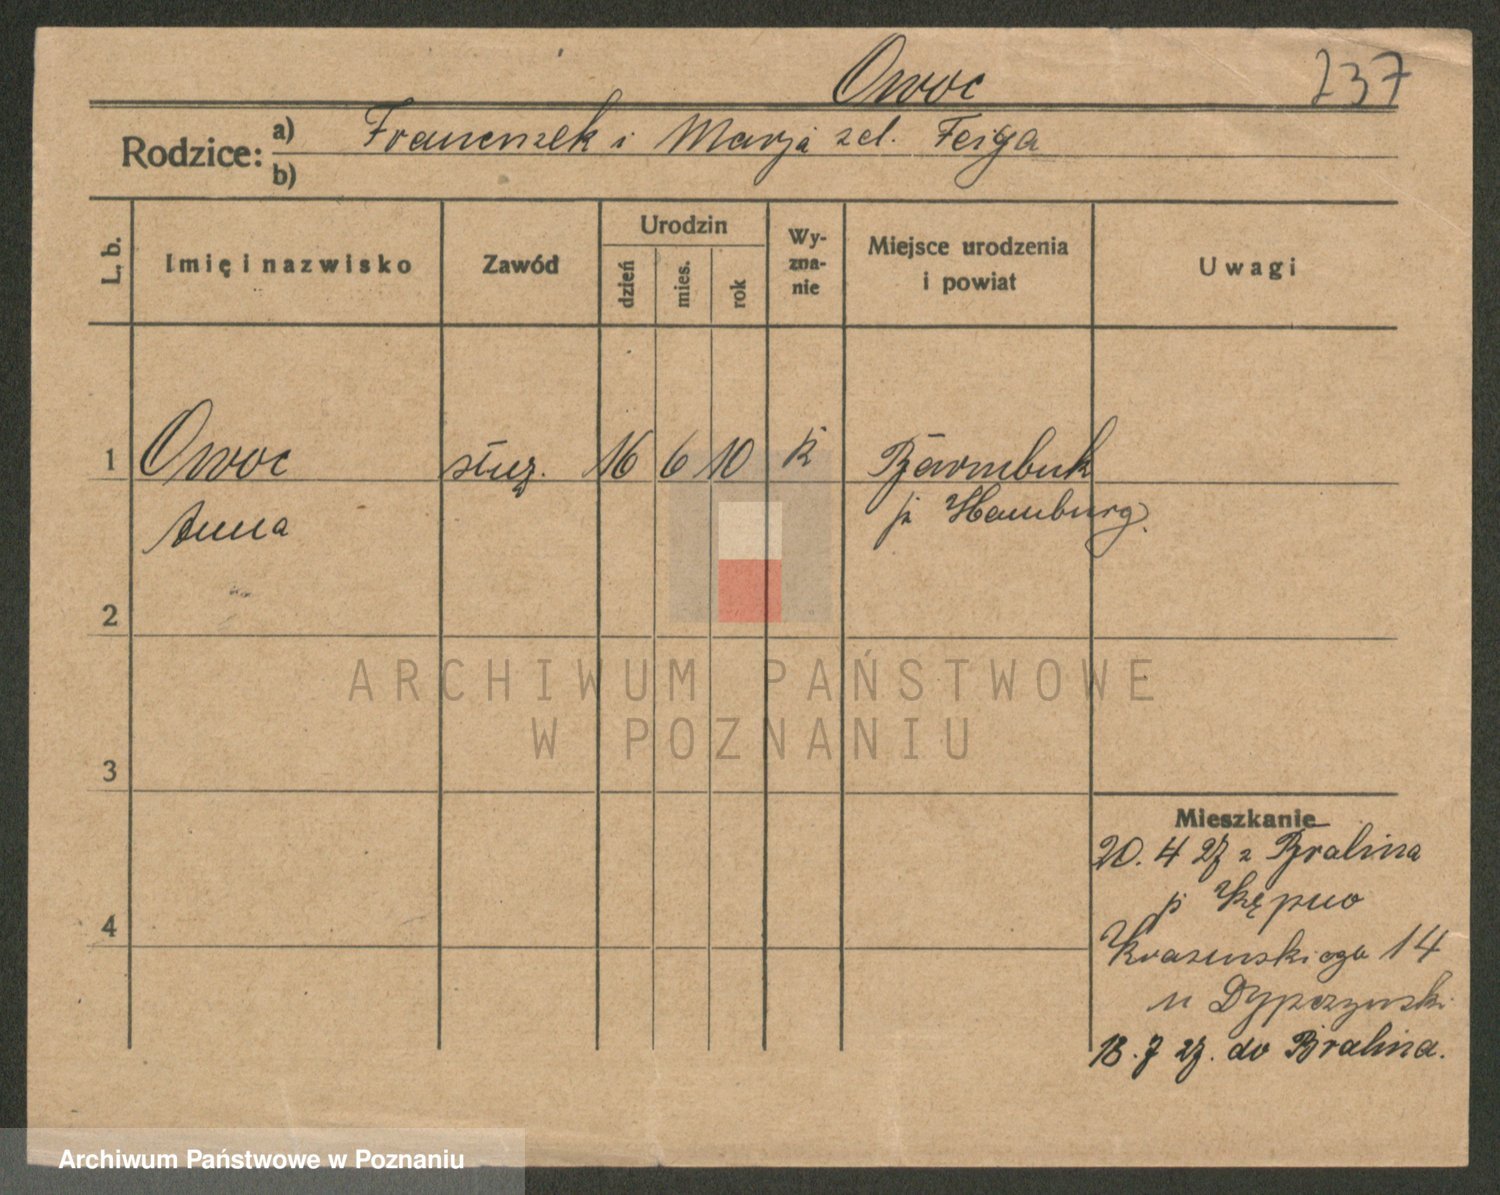 Owoc
237
Rodzice: a) Franciszek i Marja zd. Feiga
b)
L. b.
Imię i nazwisko
Zawód
Urodzin
dzień
mies.
rok
Wy-
zna-
nie
Miejsce urodzenia
i powiat
Uwagi
1 Owoc służ. 16 6 10 k Barmbuk
Anna p Hamburg.
2
3
4
ARCHIWUM PAŃSTWOWE
W POZNANIU
Mieszkanie
20. 4 27 z Bralina
p Kępno
Krasinskiego 14
u
18. 7 27. do Bralina.
Archiwum Państwowe w Poznaniu